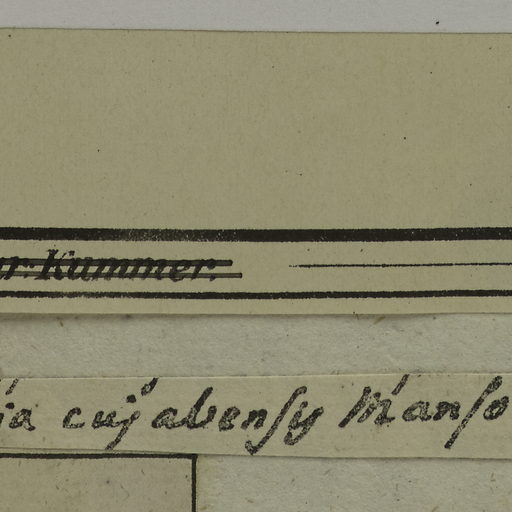 r. Kummer.
ia cujabensis Manso